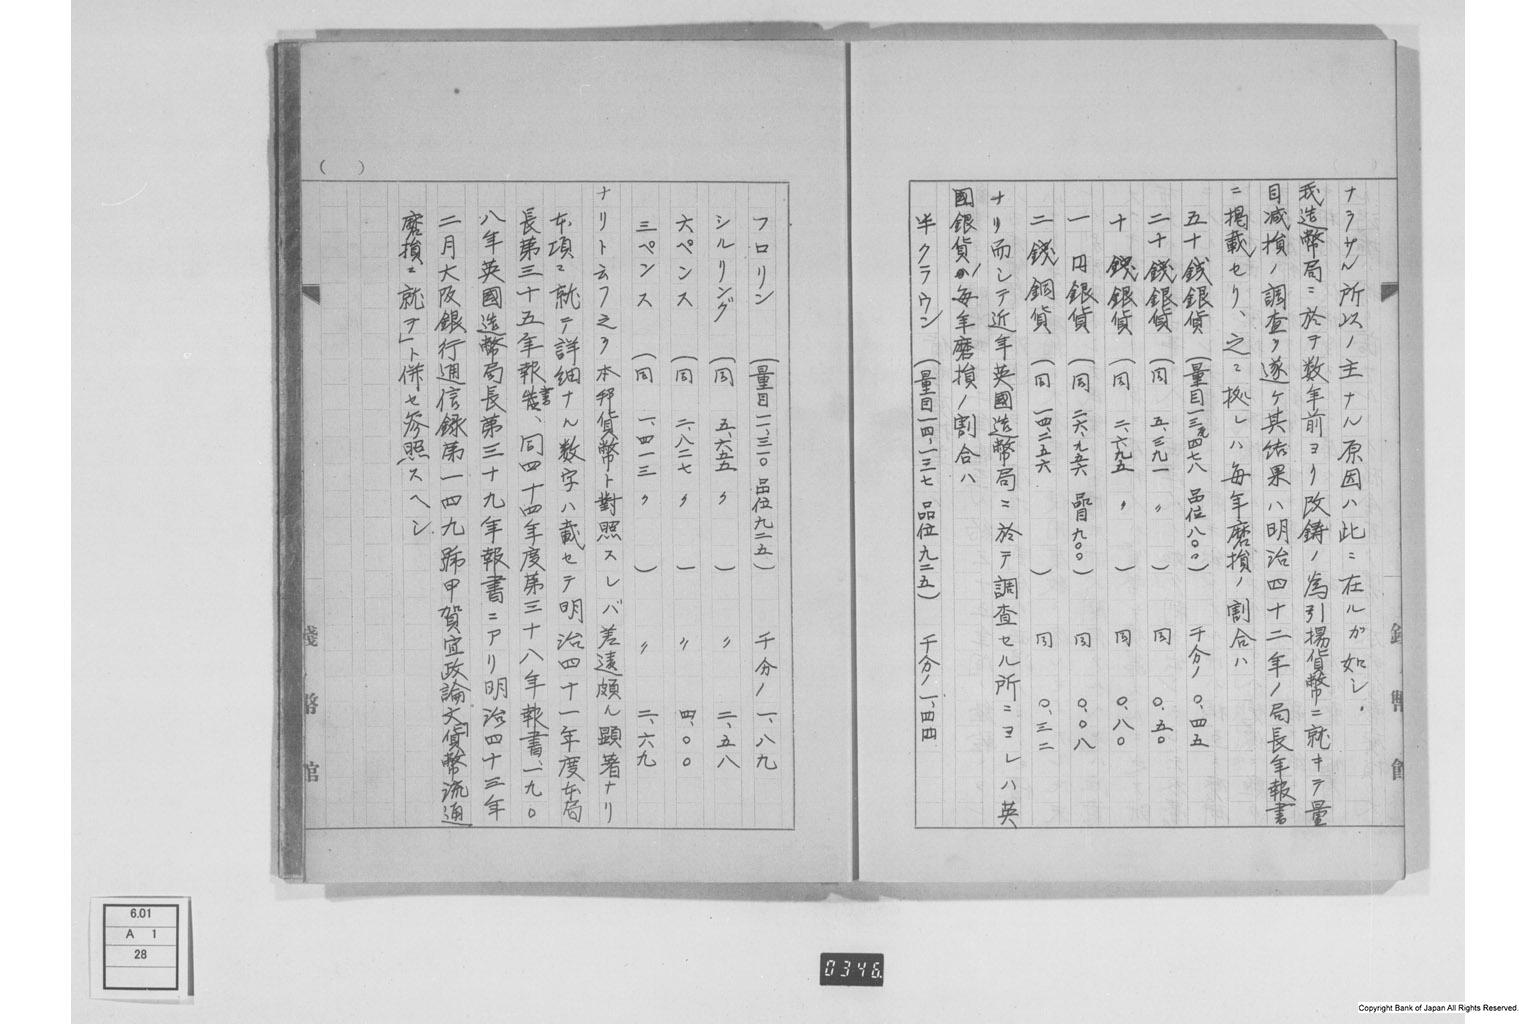 ナラサル所以ノ主ナル原因ハ此ニ在ルガ如シ、
我造幣局ニ於テ数年前ヨリ改鋳ノ為引揚貨幣ニ就キテ量
目減損ノ調査ヲ遂ケ其結果ハ明治四十二年ノ局長年報書
ニ掲載セリ、之ニ拠レハ毎年磨損ノ割合ハ
五十銭銀貨 (量目一三、四七八 品位八〇〇) 千分ノ 〇、四五
二十銭銀貨 (同 五、三九一 〃 ) 同 〇、五〇
十銭銀貨 (同 二、六九五 〃 ) 同 〇、八〇
一円銀貨 (同 二六、九五六 品位九〇〇) 同 〇、〇八
二銭銅貨 (同 一四、二五六 ) 同 〇、三二
ナリ而シテ近年英國造幣局ニ於テ調査セル所ニヨレハ英
國銀貨ノ毎年磨損ノ割合ハ
半クラウン (量目一四、一三七 品位九二五) 千分ノ 一、四四
フロリン (量目一一、三一〇 品位九二五) 千分ノ 一、八九
シルリング (同 五、六五五 〃 ) 〃 二、五八
六ペンス (同 二、八二七 〃 ) 〃 四、〇〇
三ペンス (同 一、四一三 〃 ) 〃 二、六九
ナリト云フ之ヲ本邦貨幣ト對照スレバ差違頗ル顕著ナリ
本項ニ就テ詳細ナル数字ハ載セテ明治四十一年度本局
長第三十五年報告書、同四十四年度第三十八年報書、一九〇
八年英國造幣局長第三十九年報書ニアリ明治四十三年
二月大阪銀行通信録第一四九號甲賀宜政論文「貨幣流通
磨損ニ就テ」ト併セ参照スヘシ
( )
( )
銭幣館
銭幣館
6.01
A 1
28
0346
Copyright Bank of Japan All Rights Reserved.